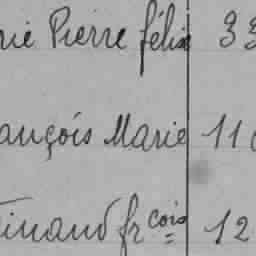 rie Pierre félix 33
ançois Marie 11
inand frcois 12